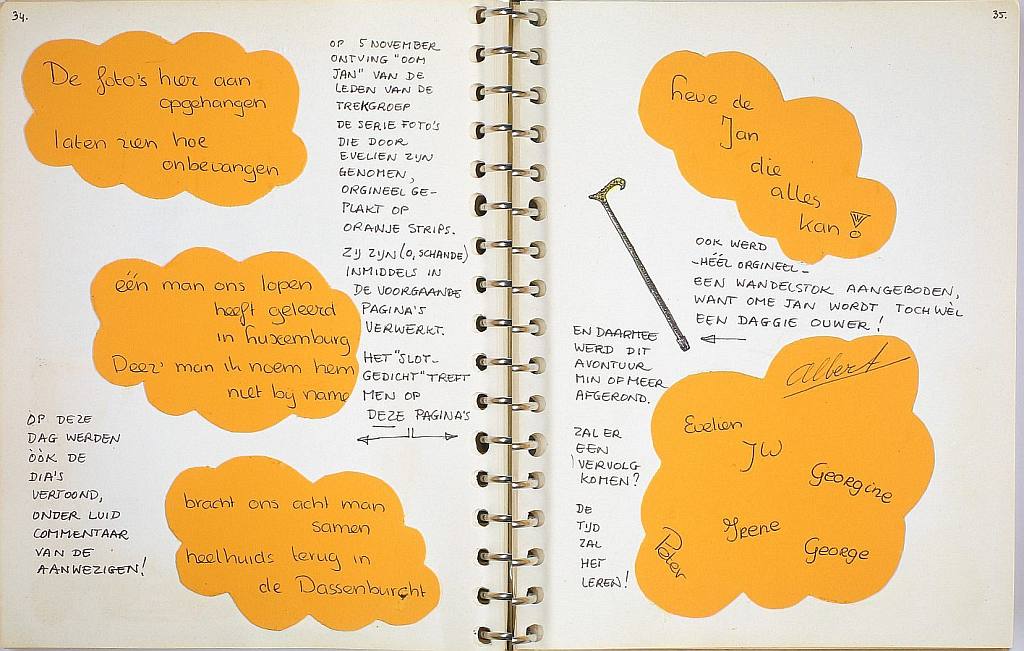 34.
De foto's hier aan
opgehangen
laten zien hoe
onbevangen
OP 5 NOVEMBER
ONTVING "OOM
JAN" VAN DE
LEDEN VAN DE
TREKGROEP
DE SERIE FOTO'S
DIE DOOR
EVELIEN ZIJN
GENOMEN,
ORGINEEL GE-
PLAKT OP
ORANJE STRIPS.
ZIJ ZIJN (O, SCHANDE)
INMIDDELS IN
DE VOORGAANDE
PAGINA'S
VERWERKT.
HET "SLOT-
GEDICHT" TREFT
MEN OP
DEZE PAGINA'S
één man ons lopen
heeft geleerd
in Luxemburg
Deez' man ik noem hem
niet bij name
OP DEZE
DAG WERDEN
ÒÒK DE
DIA'S
VERTOOND,
ONDER LUID
COMMENTAAR
VAN DE
AANWEZIGEN!
bracht ons acht man
samen
heelhuids terug in
de Dassenburcht
35.
Leve de
Jan
die
alles
kan!
OOK WERD
-HÉÉL ORGINEEL-
EEN WANDELSTOK AANGEBODEN,
WANT OME JAN WORDT TOCH WÈL
EEN DAGGIE OUWER!
EN DAARMEE
WERD DIT
AVONTUUR
MIN OF MEER
AFGEROND.
ZAL ER
EEN
VERVOLG
KOMEN?
DE
TIJD
ZAL
HET
LEREN!
Albert
Evelien
JW
Georgine
Irene
Peter
George